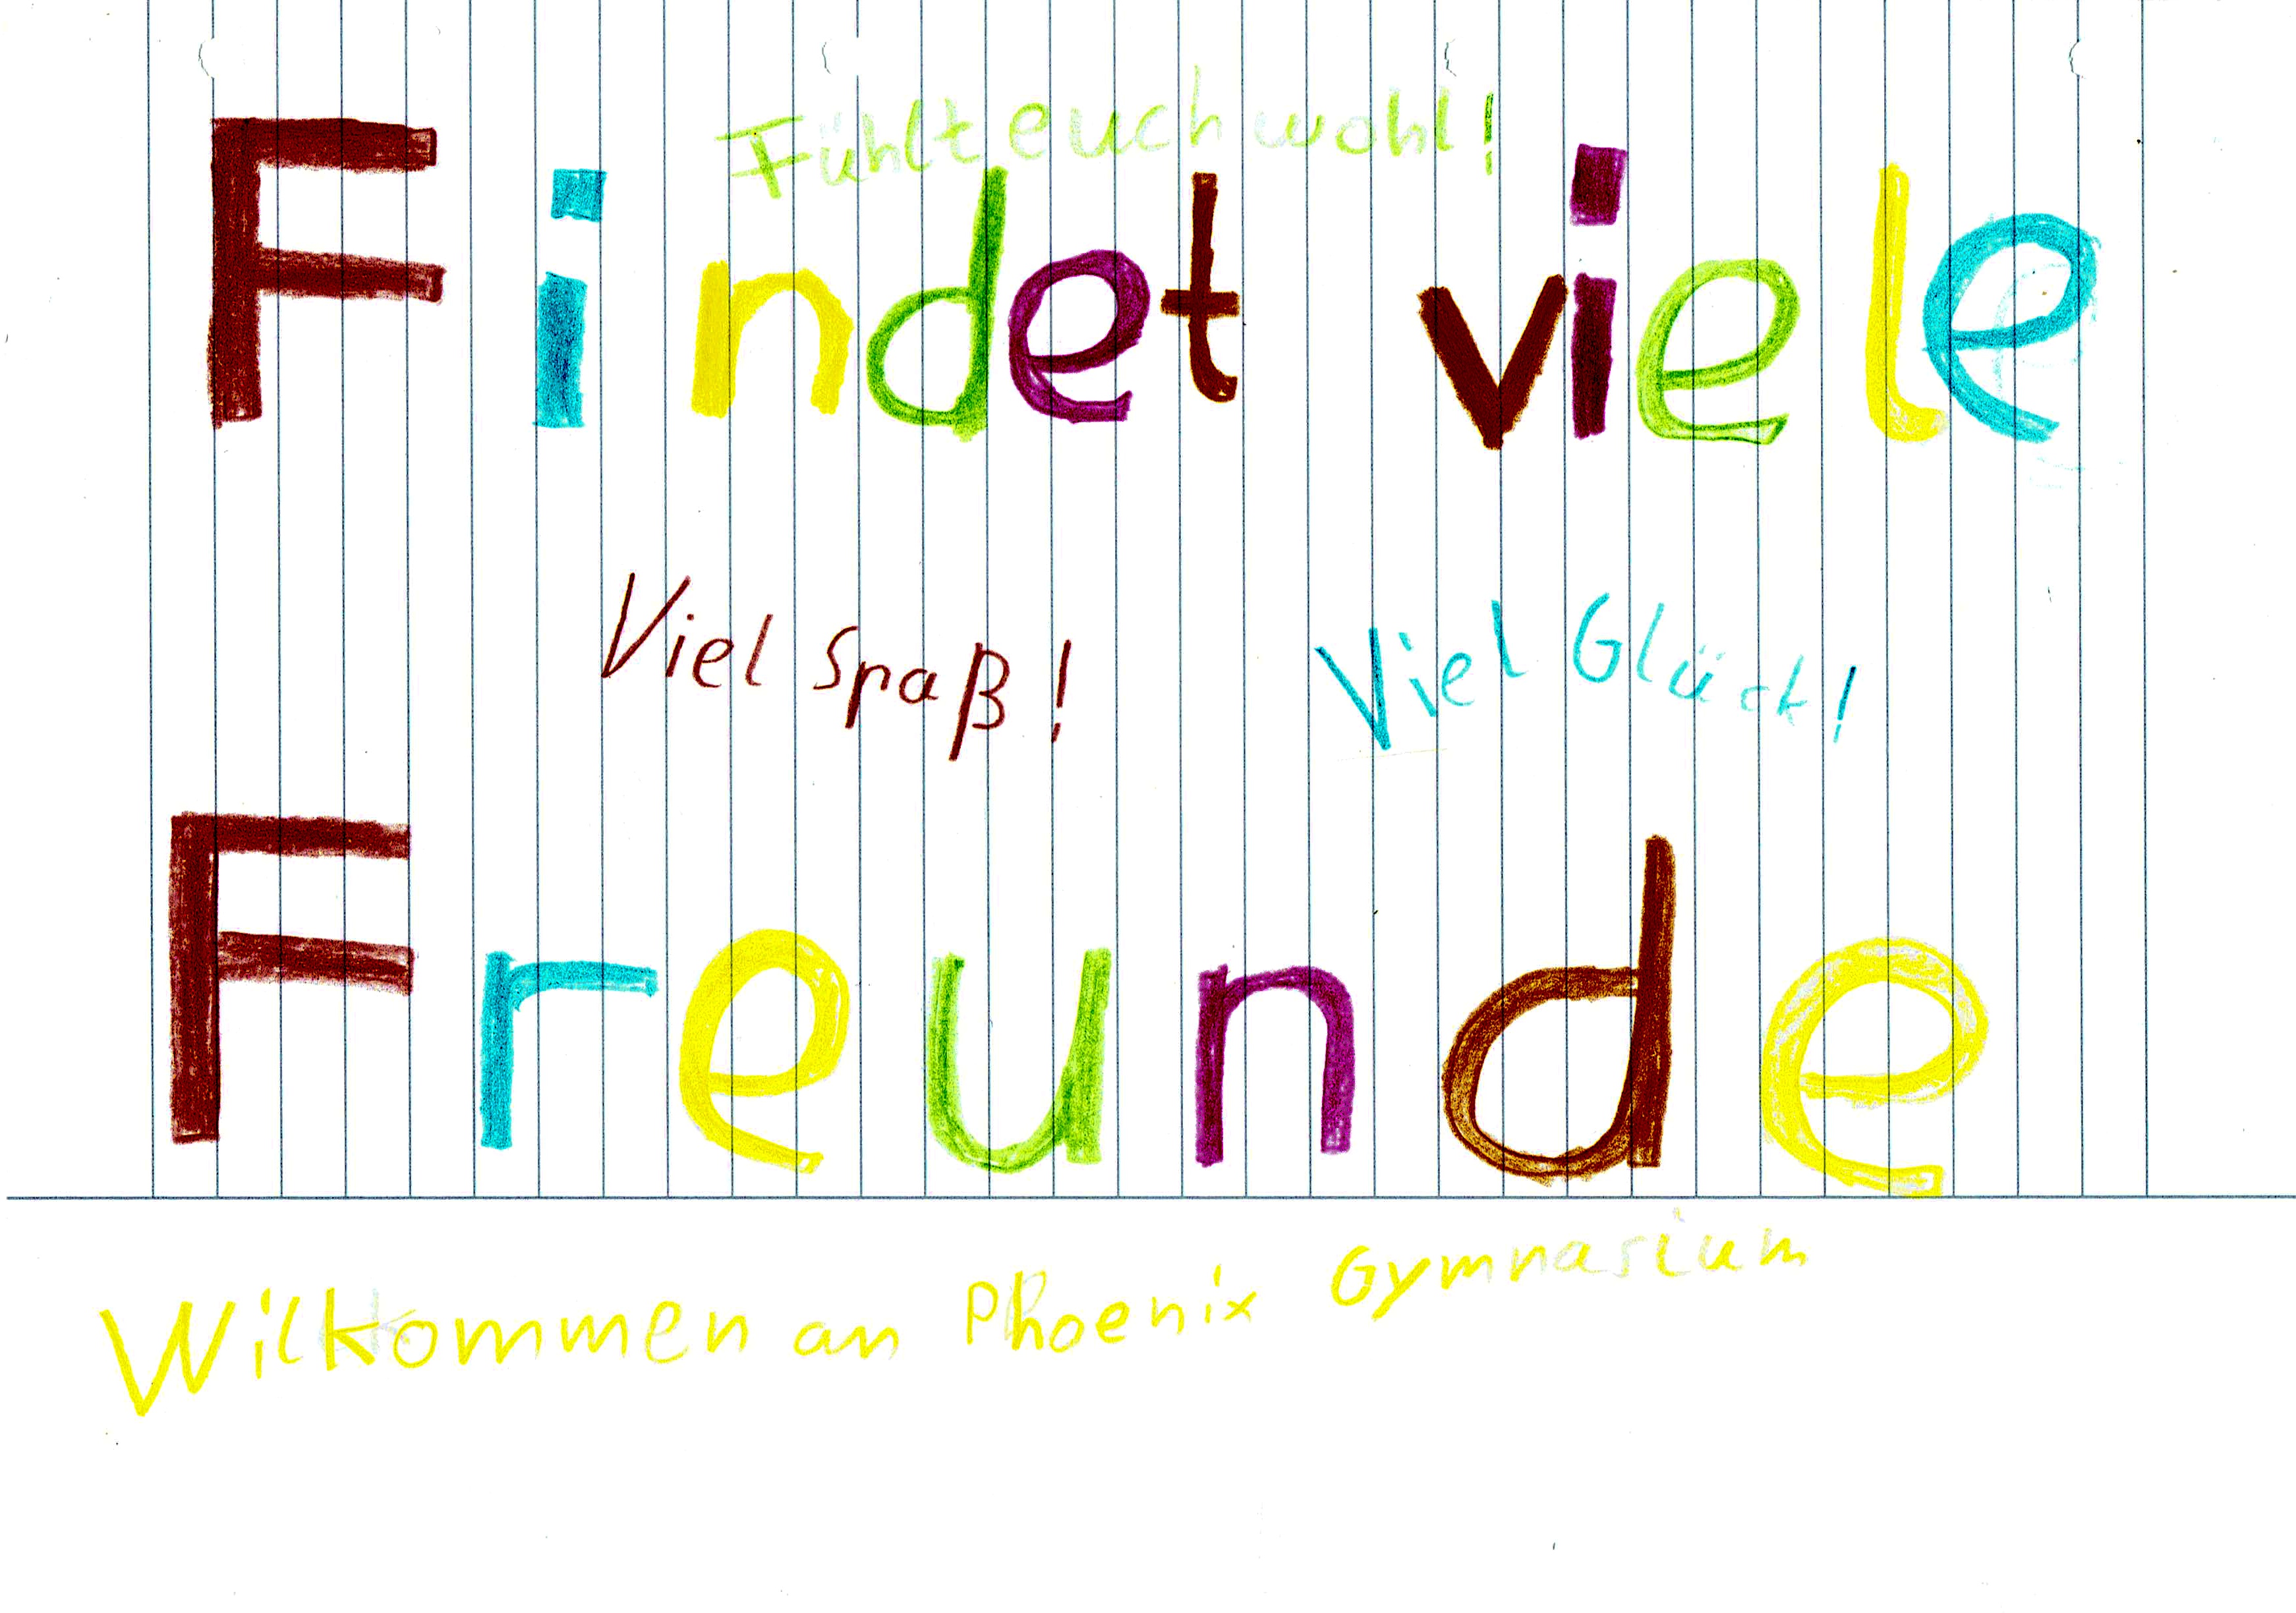 Fühlt euch wohl!
Findet viele
Viel Spaß! Viel Glück!
Freunde
Wilkommen an Phoenix Gymnasium